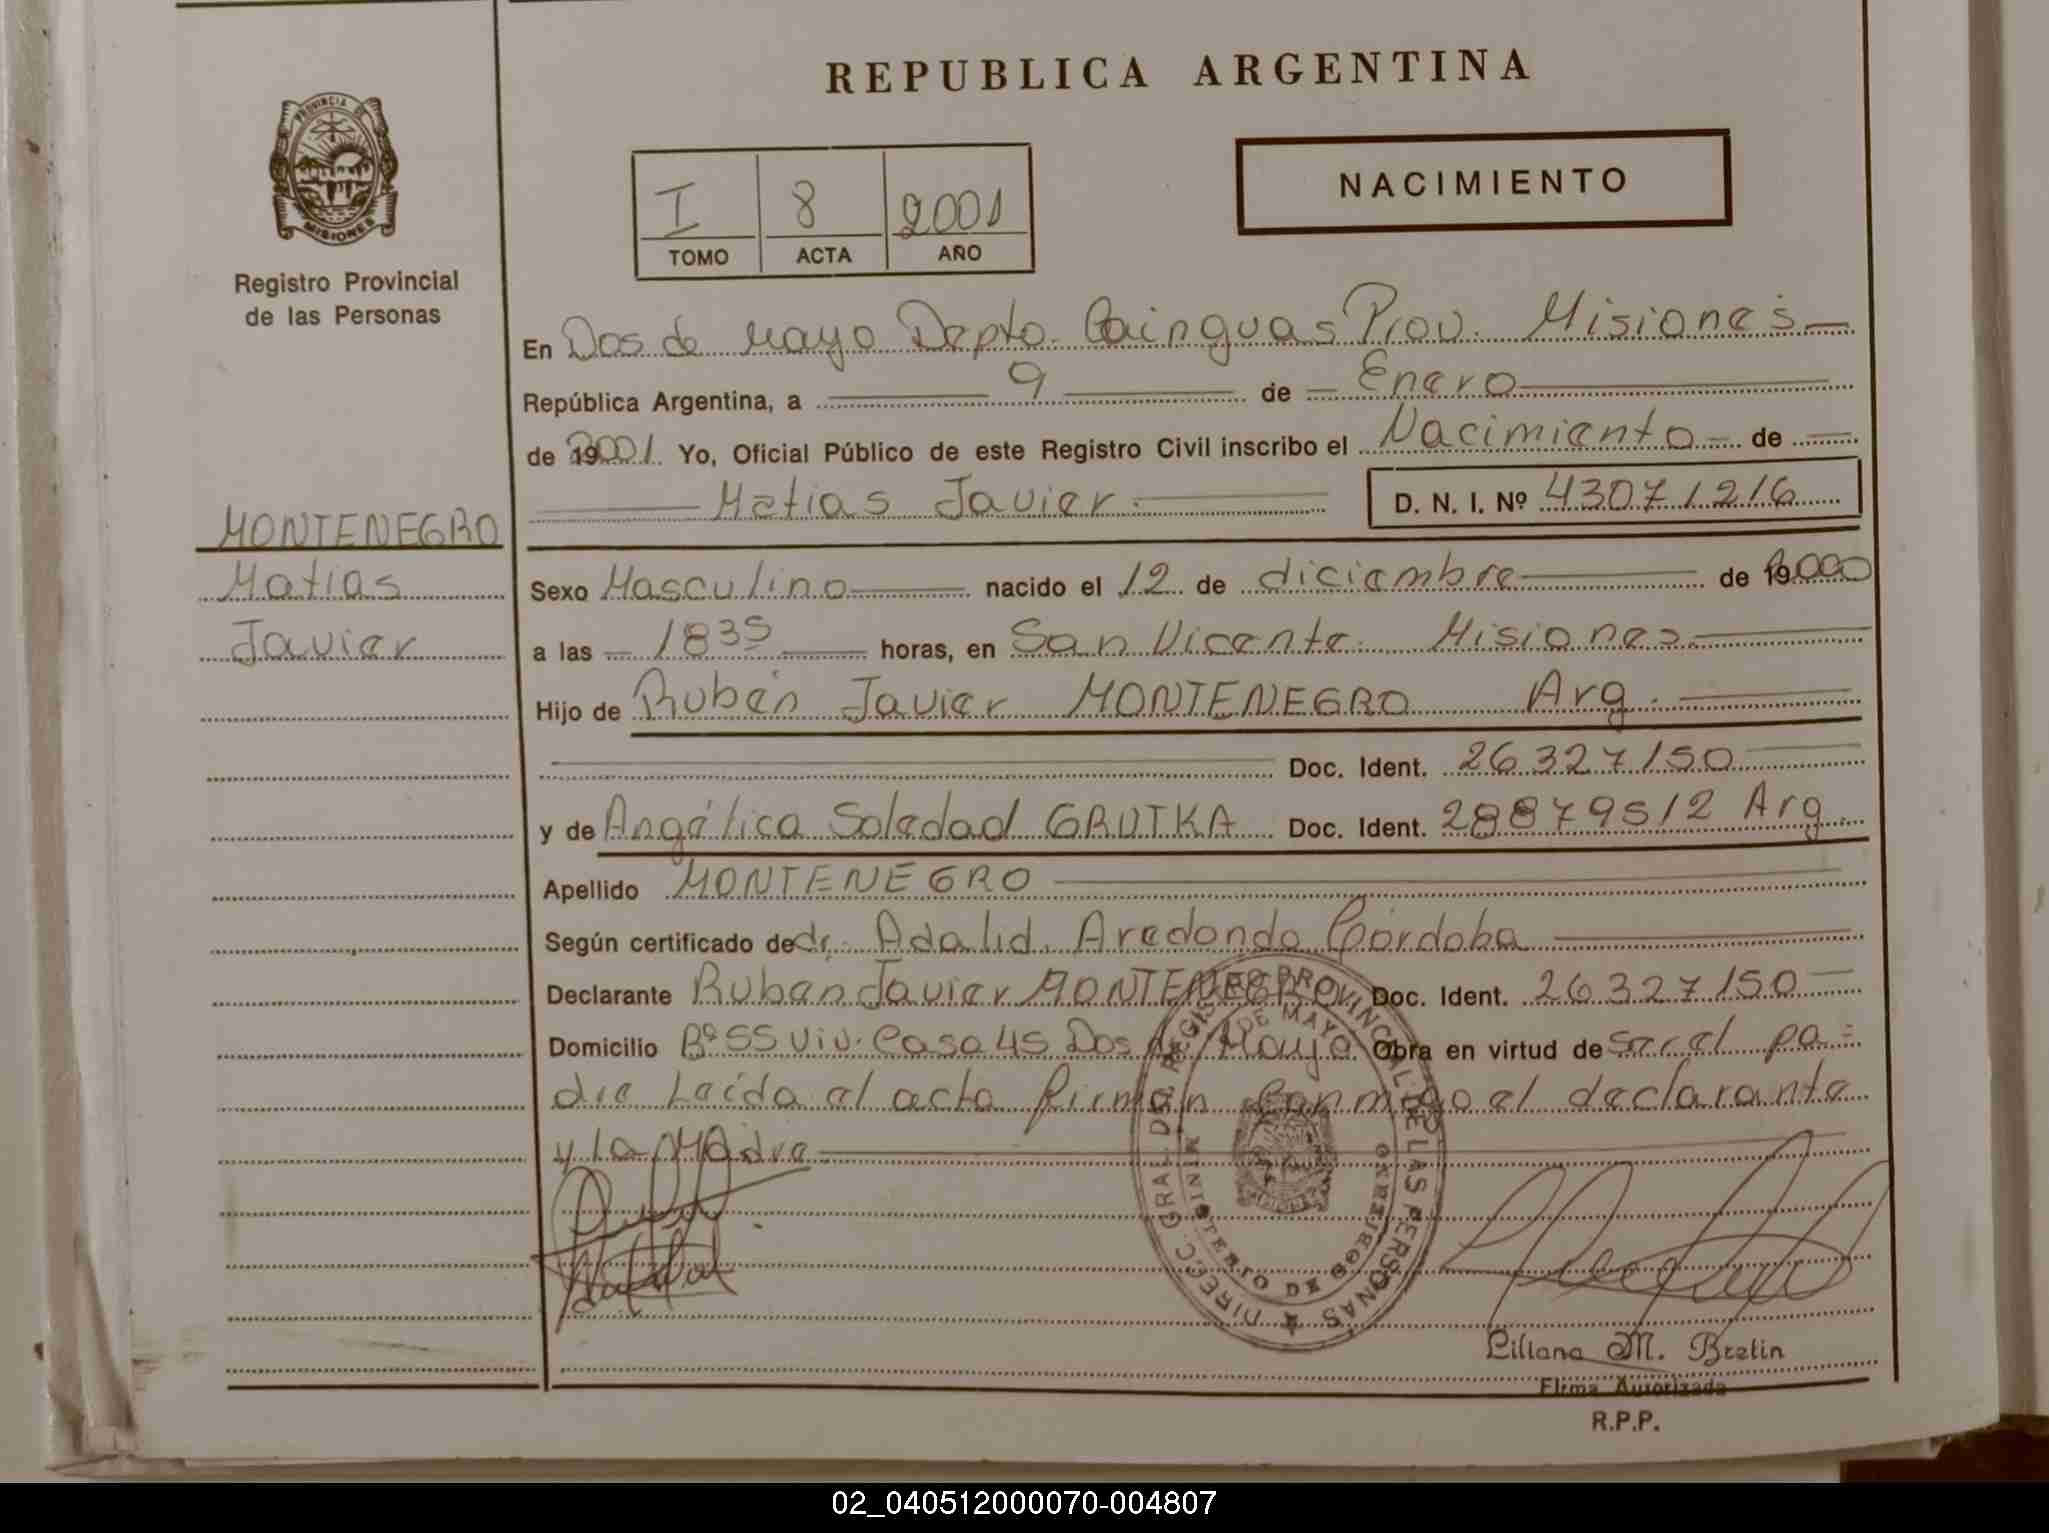 REPUBLICA ARGENTINA
PROVINCIA DE
MISIONES
Registro Provincial
de las Personas
NACIMIENTO
I 8 2001
TOMO ACTA AÑO
En Dos de Mayo Depto. Cainguas Prov. Misiones
República Argentina, a 9 de Enero
de 192001. Yo, Oficial Público de este Registro Civil inscribo el Nacimiento de
Matias Javier D. N. I. Nº 43071216
MONTENEGRO
Matias
Javier
Sexo Masculino nacido el 12 de diciembre de 192000
a las 1835 horas, en San Vicente Misiones
Hijo de Rubén Javier MONTENEGRO Arg.
Doc. Ident. 26327150
y de Angélica Soledad GRUTKA Doc. Ident. 28879512 Arg.
Apellido MONTENEGRO
Según certificado de dr. Adalid Aredondo Córdoba
Declarante Ruben Javier MONTENEGRO Doc. Ident. 26327150
Domicilio Bº 55 viv. Casa 45 Dos de Mayo Obra en virtud de ser el pa=
dre Leída el acta firman conmigo el declarante
y la Madre
DIRECC. GRAL. DEL REGIST. PROVINCIAL DE LAS PERSONAS
DE MAYO
MINISTERIO DE GOBIERNO
Liliana M. Bretin
Firma Autorizada
R.P.P.
02_040512000070-004807